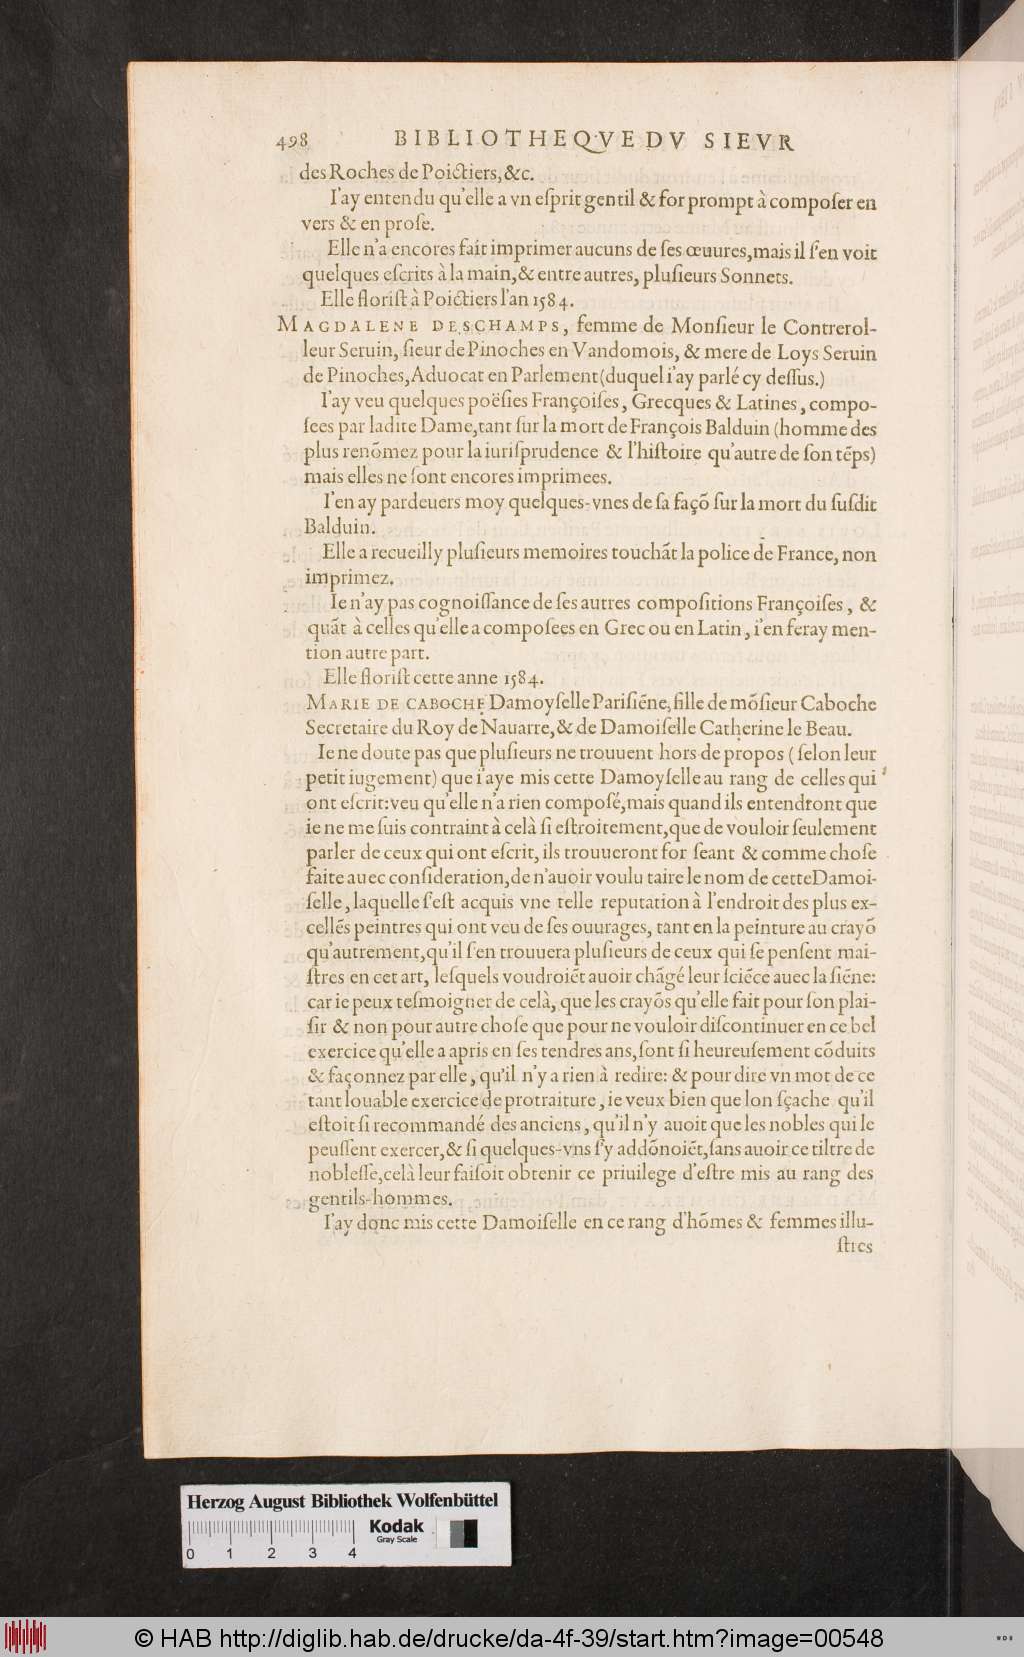 498 BIBLIOTHEQVE DV SIEVR
des Roches de Poictiers, &c.
I'ay entendu qu'elle a vn eſprit gentil & for prompt à compoſer en
vers & en proſe.
Elle n'a encores fait imprimer aucuns de ſes œuures, mais il ſ'en voit
quelques eſcrits à la main, & entre autres, pluſieurs Sonnets.
Elle floriſt à Poictiers l'an 1584.
MAGDALENE DESCHAMPS, femme de Monſieur le Contrerol-
leur Seruin, ſieur de Pinoches en Vandomois, & mere de Loys Seruin
de Pinoches, Aduocat en Parlement (duquel i'ay parlé cy deſſus.)
I'ay veu quelques poëſies Françoiſes, Grecques & Latines, compo-
ſees par ladite Dame, tant ſur la mort de François Balduin (homme des
plus renõmez pour la iuriſprudence & l'hiſtoire qu'autre de ſon tẽps)
mais elles ne ſont encores imprimees.
I'en ay pardeuers moy quelques-vnes de ſa façõ ſur la mort du ſuſdit
Balduin.
Elle a recueilly pluſieurs memoires touchãt la police de France, non
imprimez.
Ie n'ay pas cognoiſſance de ſes autres compoſitions Françoiſes, &
quãt à celles qu'elle a compoſees en Grec ou en Latin, i'en feray men-
tion autre part.
Elle floriſt cette anne 1584.
MARIE DE CABOCHE Damoyſelle Pariſiẽne, fille de mõſieur Caboche
Secretaire du Roy de Nauarre, & de Damoiſelle Catherine le Beau.
Ie ne doute pas que pluſieurs ne trouuent hors de propos (ſelon leur
petit iugement) que i'aye mis cette Damoyſelle au rang de celles qui
ont eſcrit: veu qu'elle n'a rien compoſé, mais quand ils entendront que
ie ne me ſuis contraint à celà ſi eſtroitement, que de vouloir ſeulement
parler de ceux qui ont eſcrit, ils trouueront for ſeant & comme choſe
faite auec conſideration, de n'auoir voulu taire le nom de cette Damoi-
ſelle, laquelle ſ'eſt acquis vne telle reputation à l'endroit des plus ex-
cellẽs peintres qui ont veu de ſes ouurages, tant en la peinture au crayõ
qu'autrement, qu'il ſ'en trouuera pluſieurs de ceux qui ſe penſent mai-
ſtres en cet art, leſquels voudroiẽt auoir chãgé leur ſciẽce auec la ſiẽne:
car ie peux teſmoigner de celà, que les crayõs qu'elle fait pour ſon plai-
ſir & non pour autre choſe que pour ne vouloir diſcontinuer en ce bel
exercice qu'elle a apris en ſes tendres ans, ſont ſi heureuſement cõduits
& façonnez par elle, qu'il n'y a rien à redire: & pour dire vn mot de ce
tant louable exercice de protraiture, ie veux bien que lon ſçache qu'il
eſtoit ſi recommandé des anciens, qu'il n'y auoit que les nobles qui le
peuſſent exercer, & ſi quelques-vns ſ'y addõnoiẽt, ſans auoir ce tiltre de
nobleſſe, celà leur faiſoit obtenir ce priuilege d'eſtre mis au rang des
gentils-hommes.
I'ay donc mis cette Damoiſelle en ce rang d'hõmes & femmes illu-
ſtres
Herzog August Bibliothek Wolfenbüttel
Kodak
Gray Scale
0 1 2 3 4
© HAB http://diglib.hab.de/drucke/da-4f-39/start.htm?image=00548